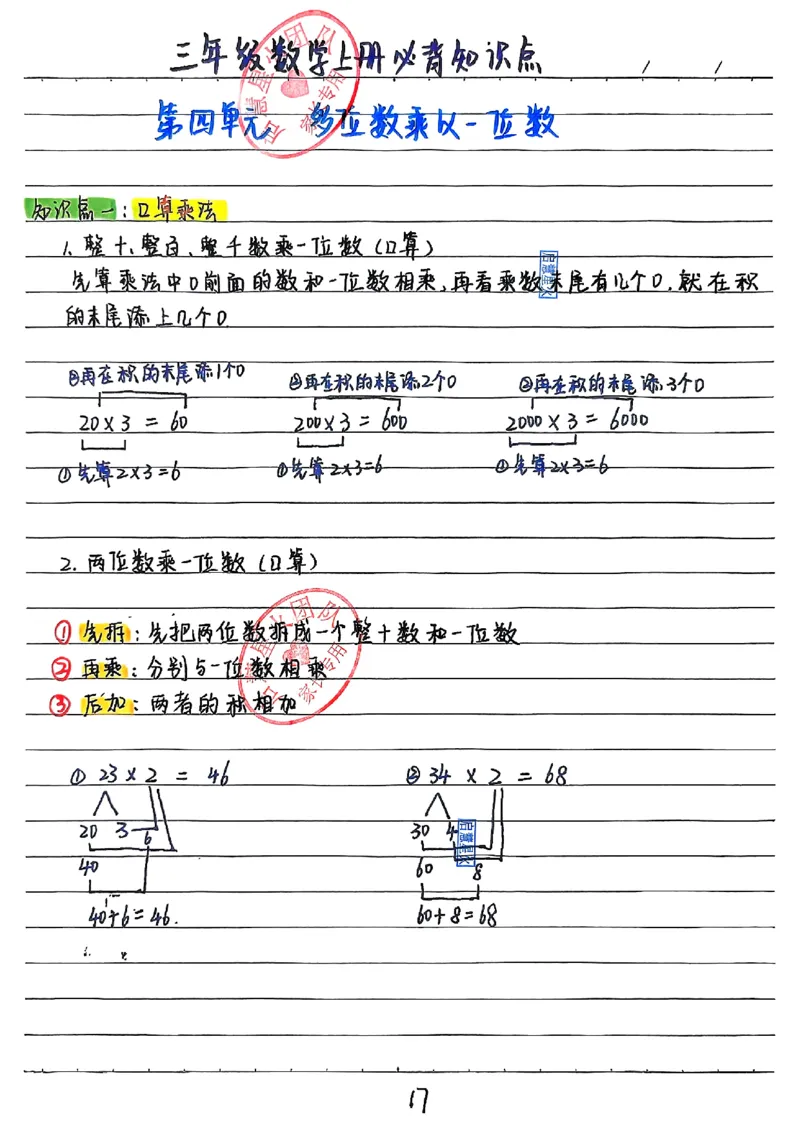 三年级数学上册必背知识点
第四单元 多位数乘以一位数
知识点一:口算乘法
1. 整十、整百、整千数乘一位数(口算)
先算乘法中0前面的数和一位数相乘,再看乘数末尾有几个0,就在积
的末尾添上几个0.
②再在积的末尾添1个0 ②再在积的末尾添2个0 ②再在积的末尾添3个0
20×3=60 200×3=600 2000×3=6000
①先算2×3=6 ①先算2×3=6 ①先算2×3=6
2. 两位数乘一位数(口算)
①先拆:先把两位数拆成一个整十数和一位数
②再乘:分别与一位数相乘
③后加:两者的积相加
①23×2=46 ②34×2=68
20 3 6 30 4
40 60 8
40+6=46. 60+8=68
17
启慧星火团队
家长专用
启慧星火团队
家长专用
启慧星火
启慧星火